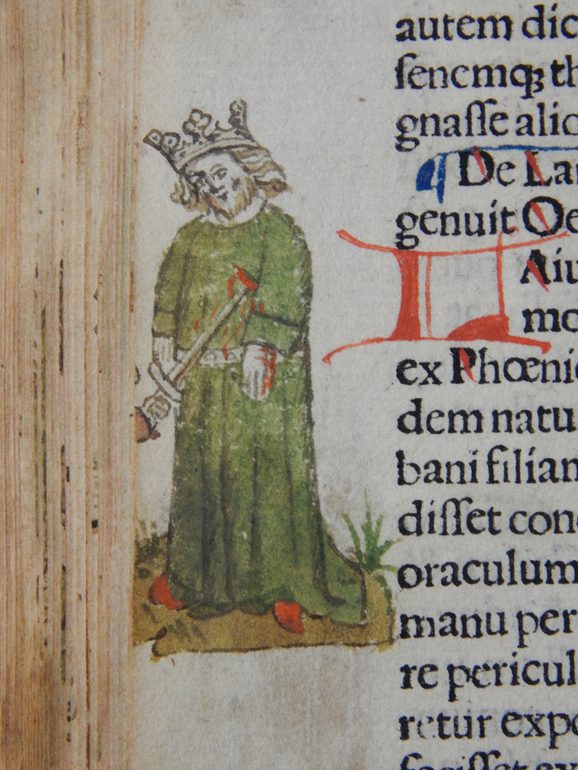 autem dic
ſenemqꝫ th
gnaſſe alic
¶ De Lai
genuit Oe
LAiu
mo
ex Phœnic
dem natu
bani filiam
diſſet conc
oraculum
manu per
re pericul
retur expo